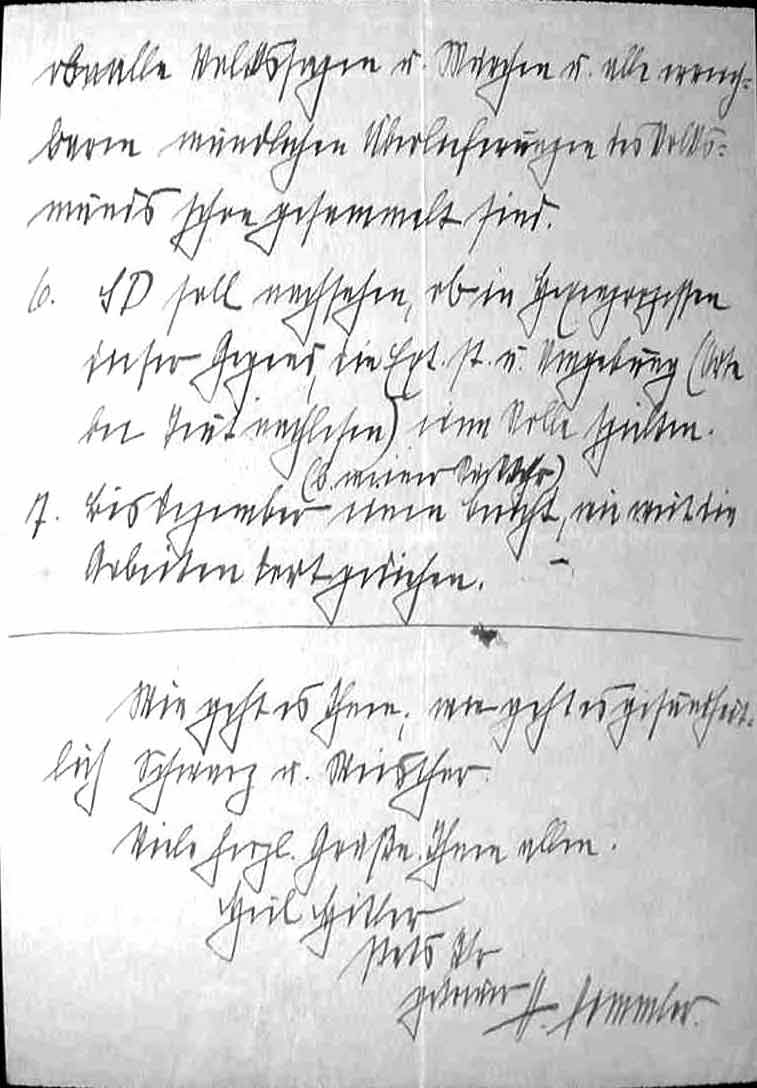 ob alle Volkssagen u. Märchen u. alle erreich-
baren mündlichen Überlieferungen des Volks-
munds schon gesammelt sind.
6. SD soll nachsehen, ob in Hexenprozessen
in der Gegend, die Ext. St. u. Umgebung (Orte
bei Teut nachlesen) eine Rolle spielten.
7. Bis Dezember (b. meiner Rückkehr) einen Bericht, wie weit die
Arbeiten dort gediehen. –
Wie geht es Ihnen, wie geht es gesundheit-
lich Schwarz u. Weisthor.
Viele herzl. Grüße Ihnen allen.
Heil Hitler
stets Ihr
getreuer H. Himmler.